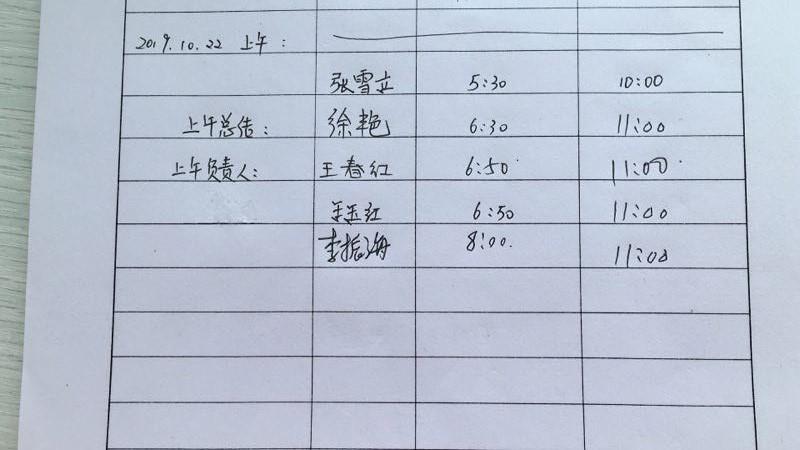 2019.10.22 上午：
张雪立 5:30 10:00
上午总告： 徐艳 6:30 11:00
上午负责人： 王春红 6:50 11:00
王玉红 6:50 11:00
李振海 8:00 11:00